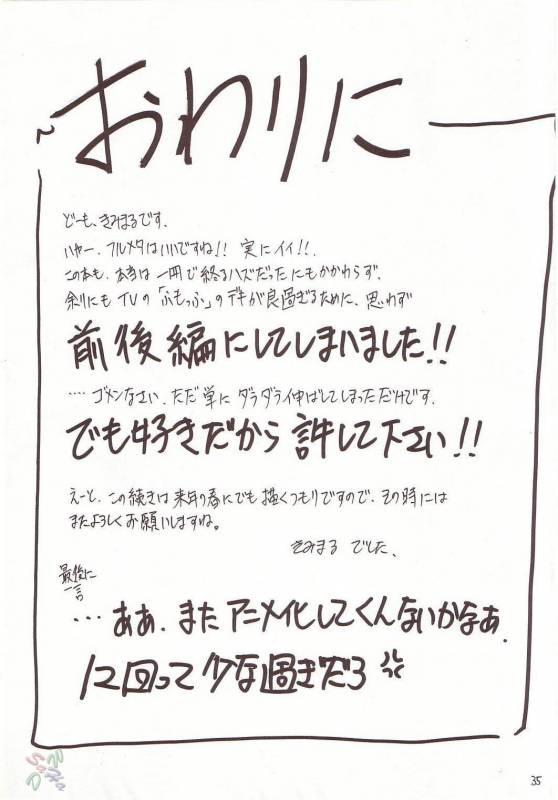 おわりに
どーも、きみまるです。
ハヤー、フルメタはいいですね!! 実にイイ!!.
この本も、本当は一冊で終るハズだったにもかかわらず、
余りにもTVの「ふもっふ」のデキが良過ぎるために、思わず
前後編にしてしまいました!!
‥‥ゴメンなさい、ただ単にダラダラ伸ばしてしまっただけです.
でも好きだから許して下さい!!
えーと、この続きは来年の春にでも描くつもりですので、その時には
またよろしくお願いしますね。
きみまる でした、
最後に
一言
‥‥ああ、またアニメ化してくんないかなあ.
12回って少な過ぎだろ
35